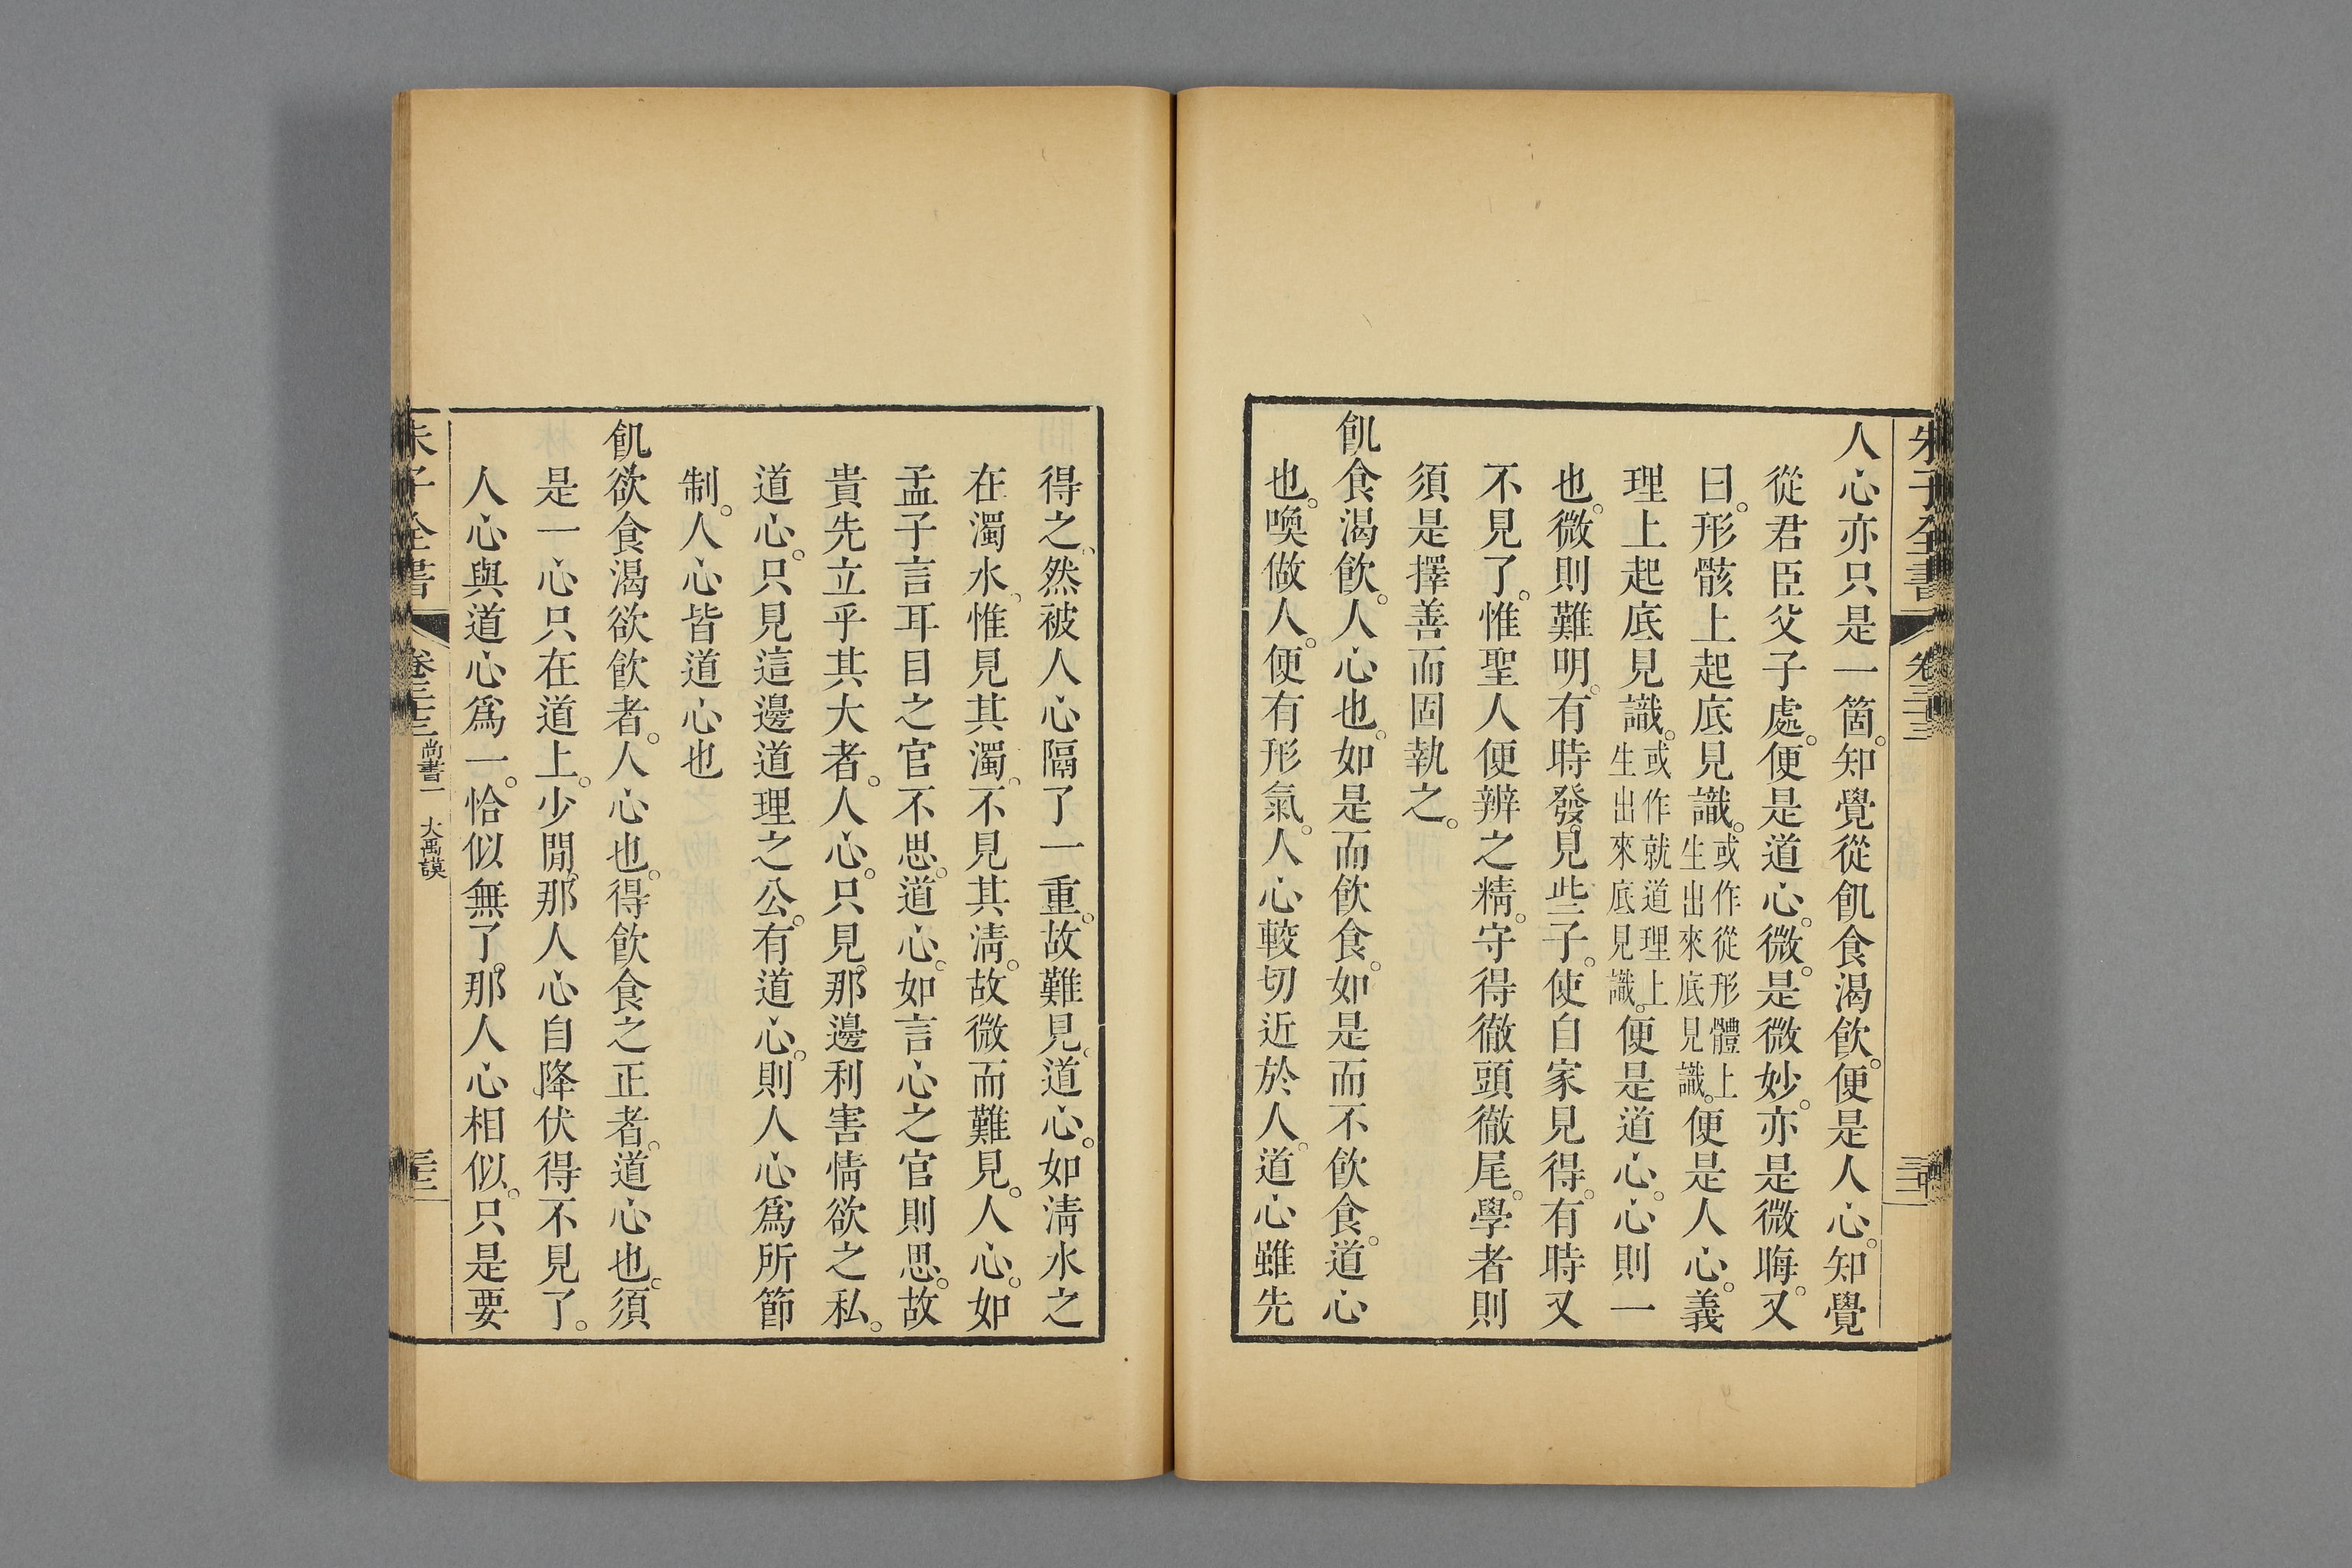 朱子全書 卷三十三
人心亦只是一箇。知覺從飢食渴飲。便是人心。知覺
從君臣父子處。便是道心。微。是微妙。亦是微晦。又
曰。形骸上起底見識。或作從形體上生出來底見識。便是人心。義
理上起底見識。或作就道理上生出來底見識。便是道心。心則一
也。微則難明。有時發見些子。使自家見得。有時又
不見了。惟聖人便辨之精。守得徹頭徹尾。學者則
須是擇善而固執之。
飢食渴飲。人心也。如是而飲食。如是而不飲食。道心
也。喚做人。便有形氣。人心較切近於人。道心雖先
得之、然被人心隔了一重。故難見。道心。如清水之
在濁水、惟見其濁、不見其清。故微而難見。人心。如
孟子言耳目之官不思。道心。如言心之官則思。故
貴先立乎其大者。人心。只見那邊利害情欲之私。
道心。只見這邊道理之公。有道心。則人心為所節
制。人心皆道心也
飢欲食渴欲飲者。人心也。得飲食之正者。道心也。須
是一心只在道上。少閒。那人心自降伏得不見了。
人心與道心爲一。恰似無了。那人心相似。只是要
朱子全書 卷三十三 尚書一 大禹謨